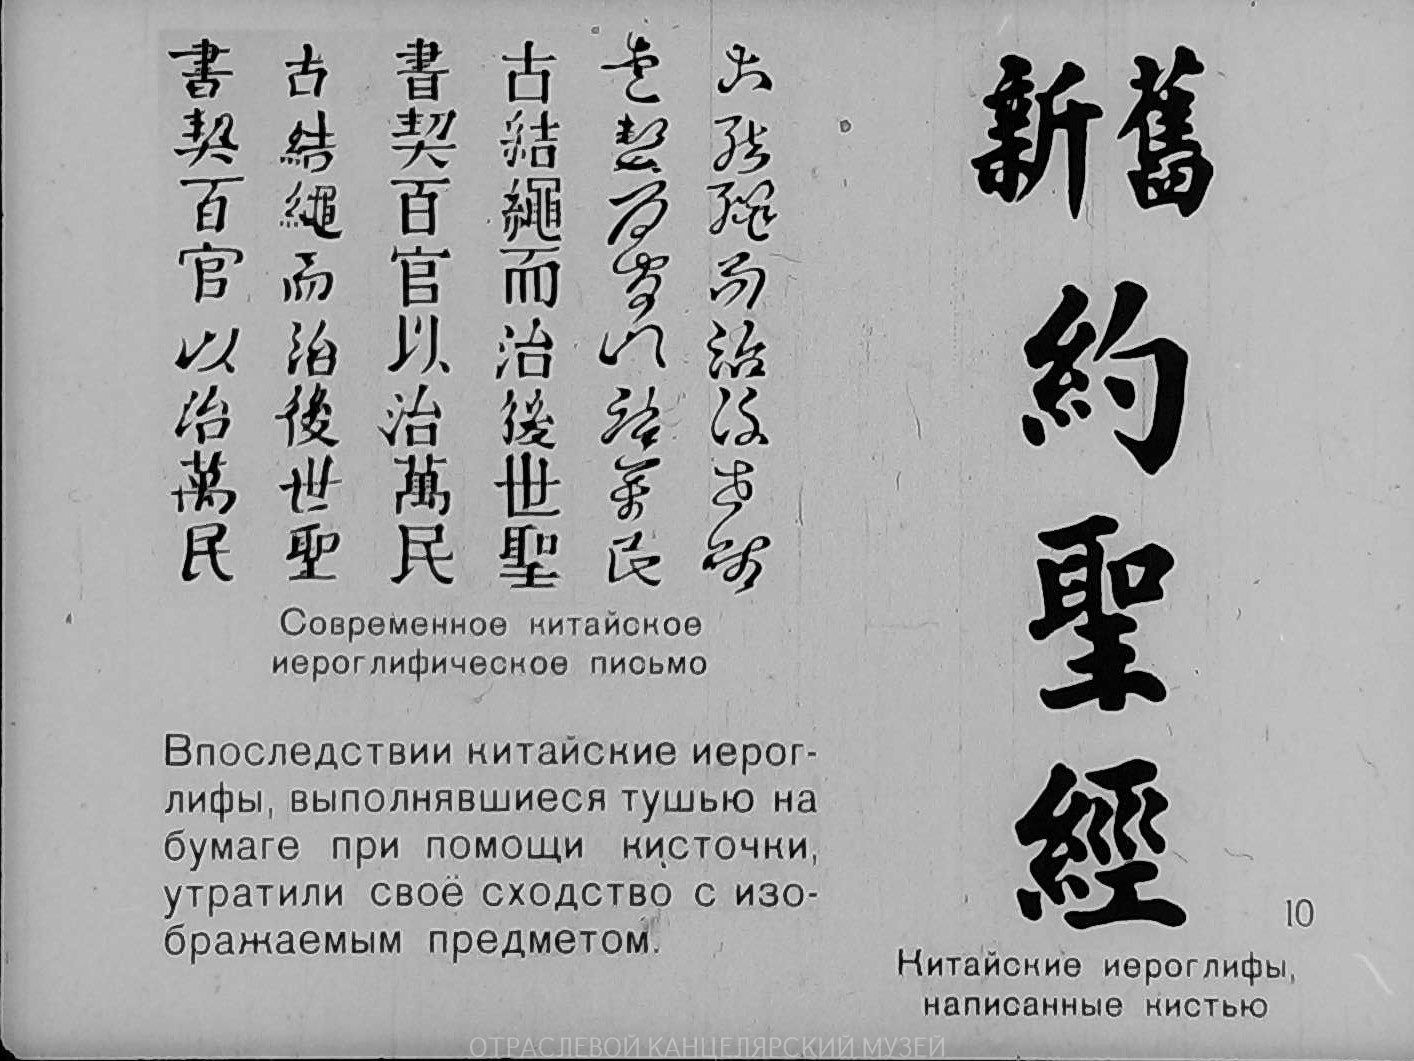 古結繩而治後世聖
書契百官以治萬民
古結繩而治後世聖
書契百官以治萬民
古結繩而治後世聖
書契百官以治萬民
Современное китайское
иероглифическое письмо
Впоследствии китайские иерог-
лифы, выполнявшиеся тушью на
бумаге при помощи кисточки,
утратили своё сходство с изо-
бражаемым предметом.
舊新約聖經
Китайские иероглифы,
написанные кистью
10
ОТРАСЛЕВОЙ КАНЦЕЛЯРСКИЙ МУЗЕЙ